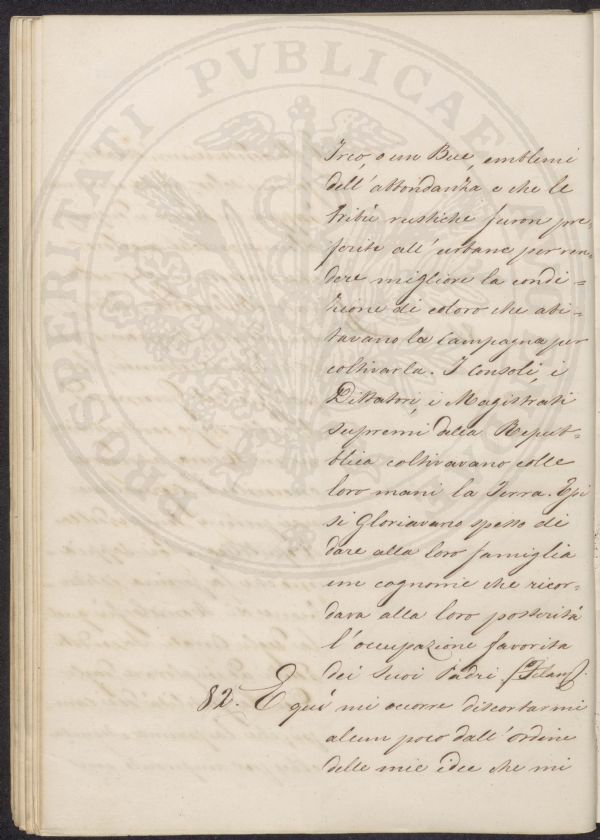 Irco, o un Bue, emblemi
dell'abbondanza e che le
tribù rustiche furon pre-
ferite all'urbane per ren-
dere migliore la condi-
zione di coloro che abi-
tavano la Campagna per
coltivarla. I Consoli, i
Dittatori, i Magistrati
supremi della Repub-
blica coltivavano colle
loro mani la Terra. Essi
si gloriavano spesso di
dare alla loro famiglia
un cognome che ricor-
dava alla loro posterità
l'occupazione favorita
dei suoi Padri (Filan).
82. E qui mi occorre discostarmi
alcun poco dall'ordine
delle mie idee che mi
PROSPERITATI PVBLICAE